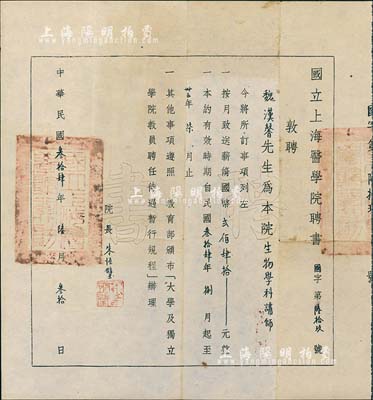 國立上海醫學院聘書 國字第陸拾玖號
敦聘
魏漢馨先生為本院生物學科講師
今將所訂事項列左
一 按月致送薪脩國幣貳佰肆拾元整
一 本約有效時期自民國叁拾肆年捌月起至
年柒月止
一 其他事項遵照教育部頒布「大學及獨立
學院教員聘任待遇暫行規程」辦理
院長 朱恒璧
中華民國叁拾肆年陸月叁拾日
上海陽明拍賣
上海陽明拍賣